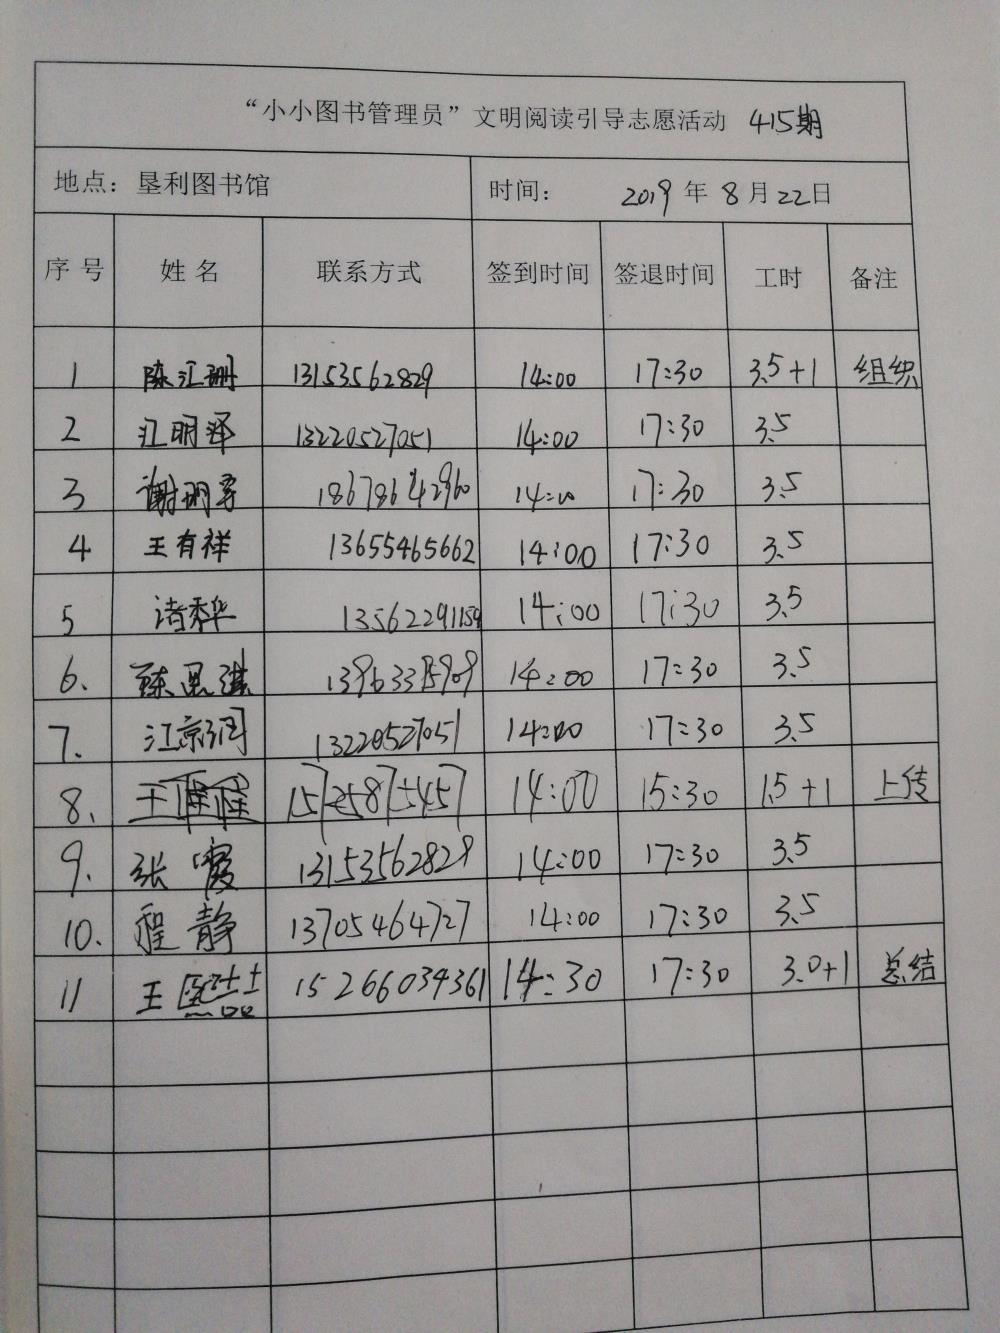 “小小图书管理员”文明阅读引导志愿活动 415期
地点：垦利图书馆 时间： 2019年8月22日
序号 姓名 联系方式 签到时间 签退时间 工时 备注
1 陈汇珊 13153562829 14:00 17:30 3.5+1 组织
2 江明泽 13220527051 14:00 17:30 3.5
3 18678642960 14:00 17:30 3.5
4 王有祥 13655465662 14:00 17:30 3.5
5 诸秀华 13562291159 14:00 17:30 3.5
6. 陈思淇 14:00 17:30 3.5
7. 江京润 13220527051 14:00 17:30 3.5
8. 王 15725875457 14:00 15:30 1.5+1 上传
9. 张霞 13153562829 14:00 17:30 3.5
10. 程静 13705464727 14:00 17:30 3.5
11 王熙喆 15266034361 14:30 17:30 3.0+1 总结